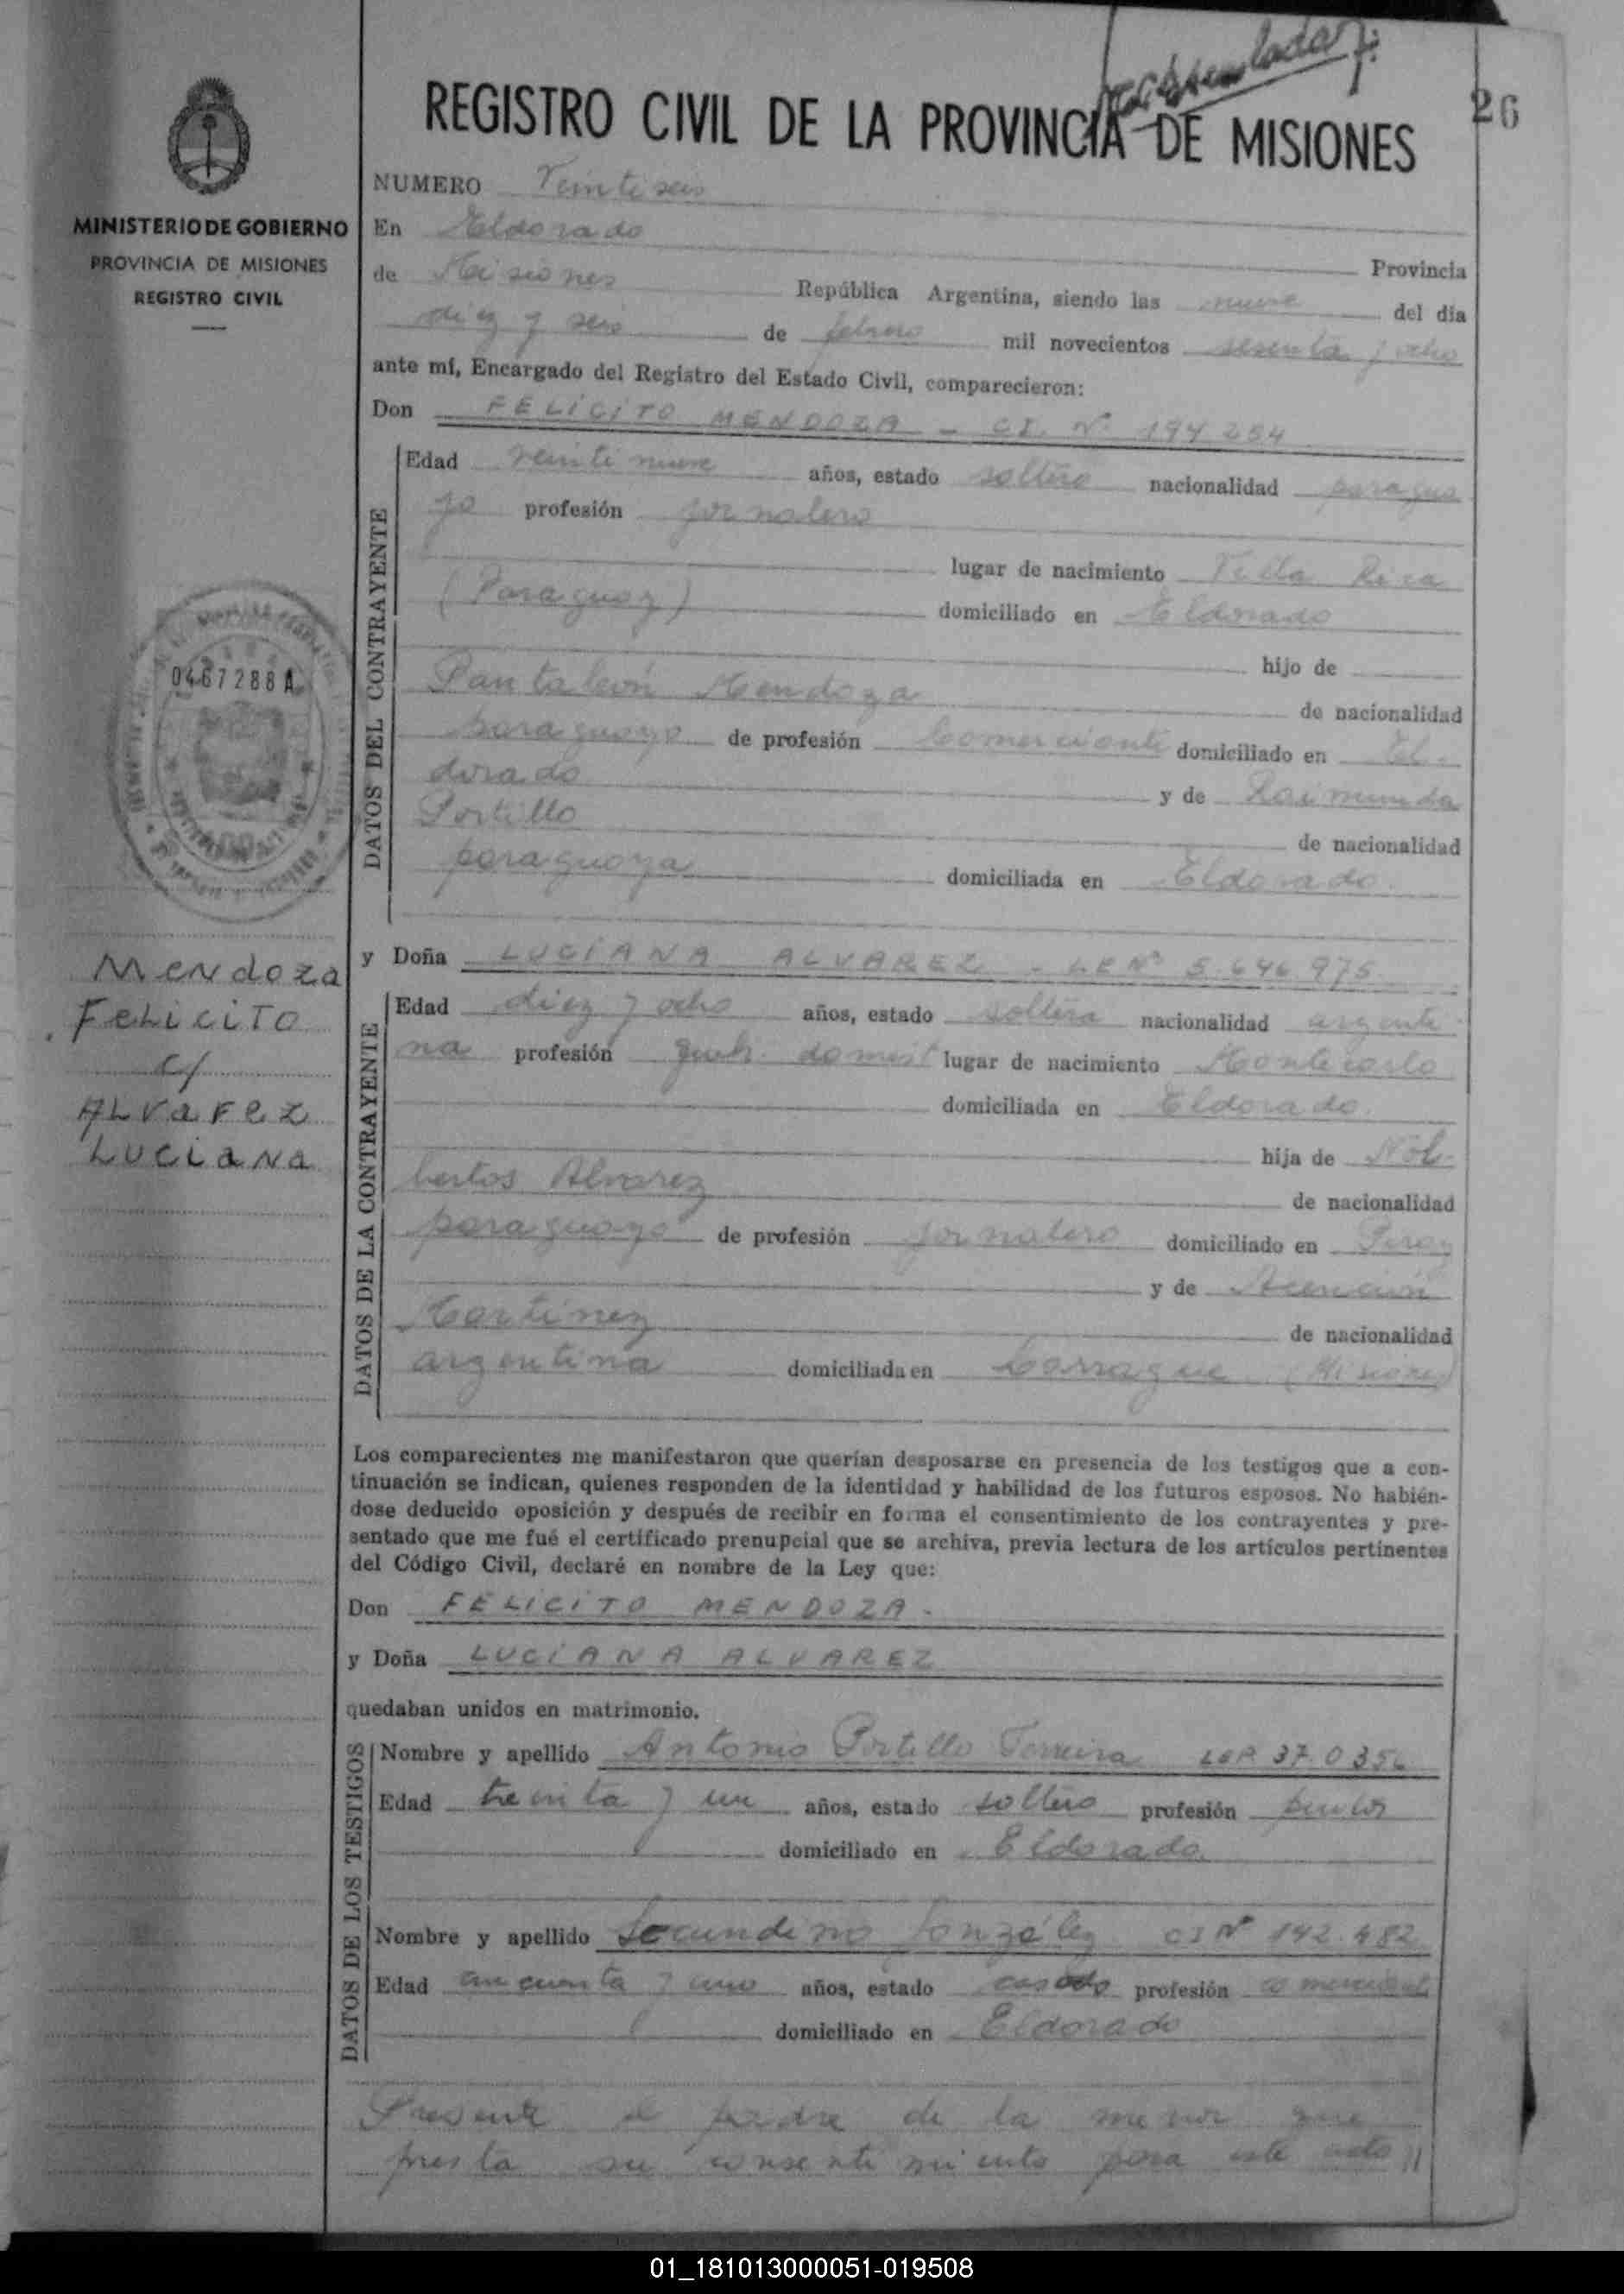 26
REGISTRO CIVIL DE LA PROVINCIA DE MISIONES
MINISTERIO DE GOBIERNO
PROVINCIA DE MISIONES
REGISTRO CIVIL
NUMERO Veintiseis
En Eldorado
Provincia
de Misiones República Argentina, siendo las nueve del día
diez y seis de febrero mil novecientos sesenta y ocho
ante mí, Encargado del Registro del Estado Civil, comparecieron:
Don FELICITO MENDOZA - CI. Nº 194254
DATOS DEL CONTRAYENTE
Edad veintinueve años, estado soltero nacionalidad paragua
yo profesión jornalero
lugar de nacimiento Villa Rica
(Paraguay) domiciliado en Eldorado
hijo de
Pantaleón Mendoza
de nacionalidad
paraguayo de profesión Comerciante domiciliado en El-
dorado
y de Raimunda
Portillo
de nacionalidad
paraguaya domiciliada en Eldorado.
0467288A
Mendoza
Felicito
c/
Alvarez
Luciana
y Doña LUCIANA ALVAREZ - LE Nº 5.646.975
DATOS DE LA CONTRAYENTE
Edad diez y ocho años, estado soltera nacionalidad argenti
na profesión queh. domést lugar de nacimiento Montecarlo
domiciliada en Eldorado.
hija de
Alvarez
de nacionalidad
paraguayo de profesión jornalero domiciliado en Piray
y de
Martínez
de nacionalidad
argentina domiciliada en (Misiones)
Los comparecientes me manifestaron que querían desposarse en presencia de los testigos que a con-
tinuación se indican, quienes responden de la identidad y habilidad de los futuros esposos. No habién-
dose deducido oposición y después de recibir en forma el consentimiento de los contrayentes y pre-
sentado que me fué el certificado prenupcial que se archiva, previa lectura de los artículos pertinentes
del Código Civil, declaré en nombre de la Ley que:
Don FELICITO MENDOZA.
y Doña LUCIANA ALVAREZ
quedaban unidos en matrimonio.
DATOS DE LOS TESTIGOS
Nombre y apellido Antonio Portillo Ferreira
Edad treinta y un años, estado soltero profesión pintor
domiciliado en Eldorado
Nombre y apellido Secundino González CI Nº 142.482
Edad cincuenta y uno años, estado casado profesión comerciante
domiciliado en Eldorado
Presente el padre de la menor que
presta su consentimiento para este acto //
01_181013000051-019508